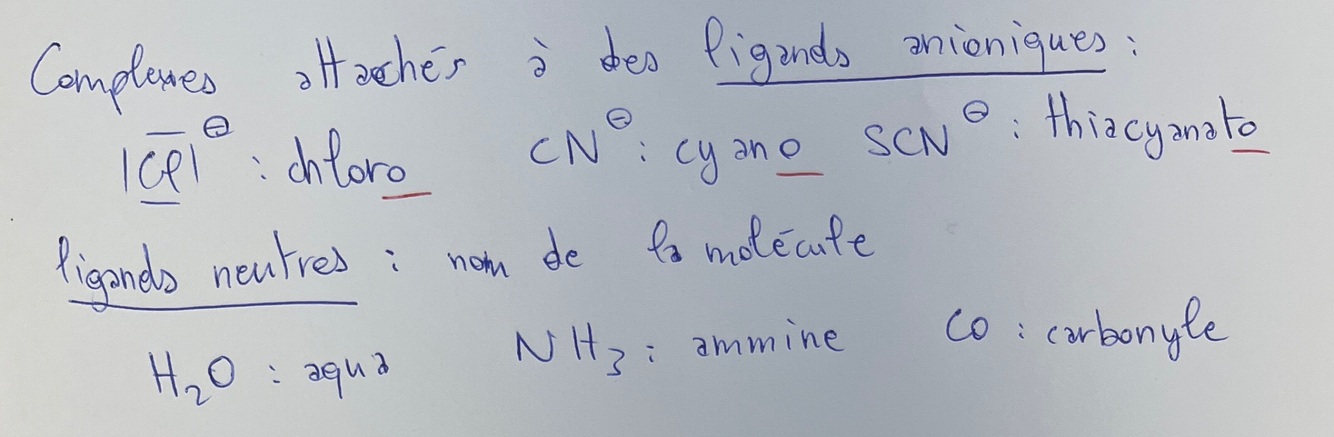 Complexes attachés à des ligands anioniques :
|Cl|⊖ : chloro CN⊖ : cyano SCN⊖ : thiacyanato
ligands neutres : nom de la molécule
H₂O : aqua NH₃ : ammine CO : carbonyle